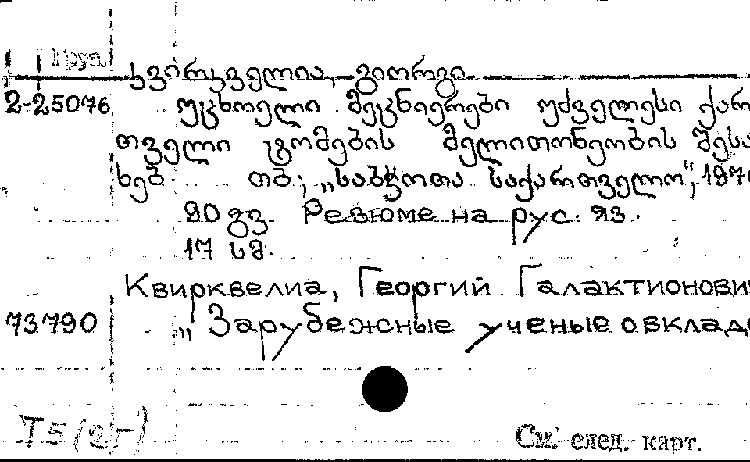 Груз.
კვირკველია, გიორგი
2-25076 უცხოელი მეცნიერები უძველესი ქარ
თველი ტომების მელითონეობის შესა
ხებ თბ., „საბჭოთა საქართველო“, 197
20 გვ. Резюме на рус. яз.
17 სმ.
Квирквелиа, Георгий Галактионови
73790 „Зарубежные ученые о вклад
T5(2Г)
См. след. карт.